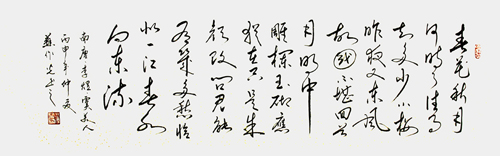 春花秋月
何時了往事
知多少小樓
昨夜又東風
故國不堪回首
月明中
雕欄玉砌應
猶在只是朱
顏改問君能
有幾多愁恰
似一江春水
向東流
南唐李煜虞美人
丙申年仲夏